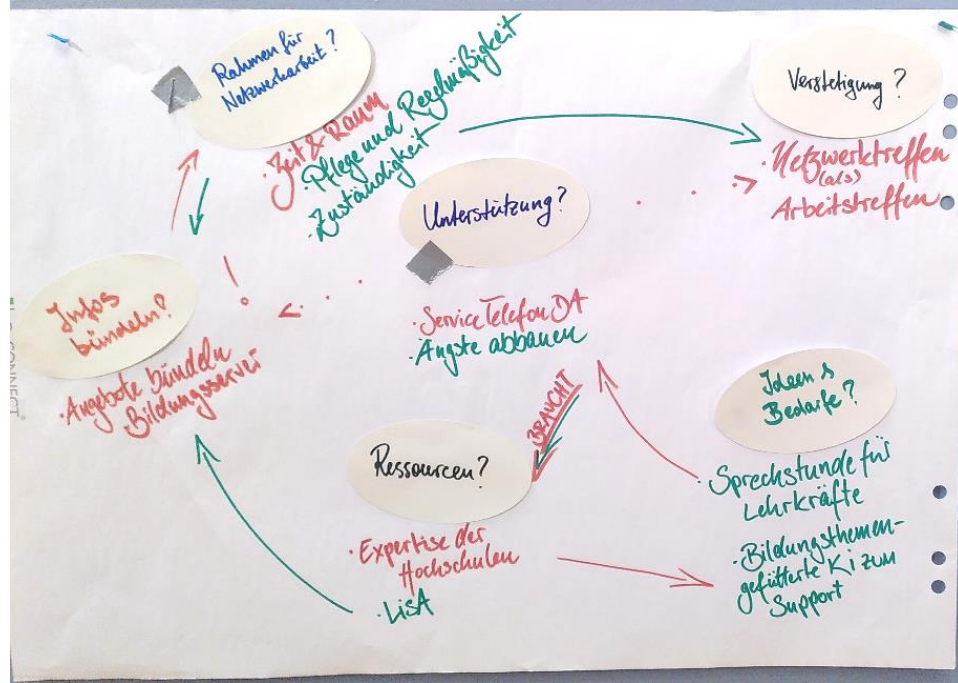 Rahmen für
Netzwerkarbeit?
· Zeit & Raum
· Pflege und Regelmäßigkeit
· Zuständigkeit
Verstetigung?
· Netzwerktreffen
(als)
Arbeitstreffen
Unterstützung?
· Service Telefon DA
· Ängste abbauen
!
Infos
bündeln?
· Angebote bündeln
· Bildungsserver
CONNECT
BRAUCHT
Ressourcen?
· Expertise der
Hochschulen
· LisA
Ideen &
Bedarfe?
· Sprechstunde für
Lehrkräfte
· Bildungsthemen-
gefütterte Ki zum
Support